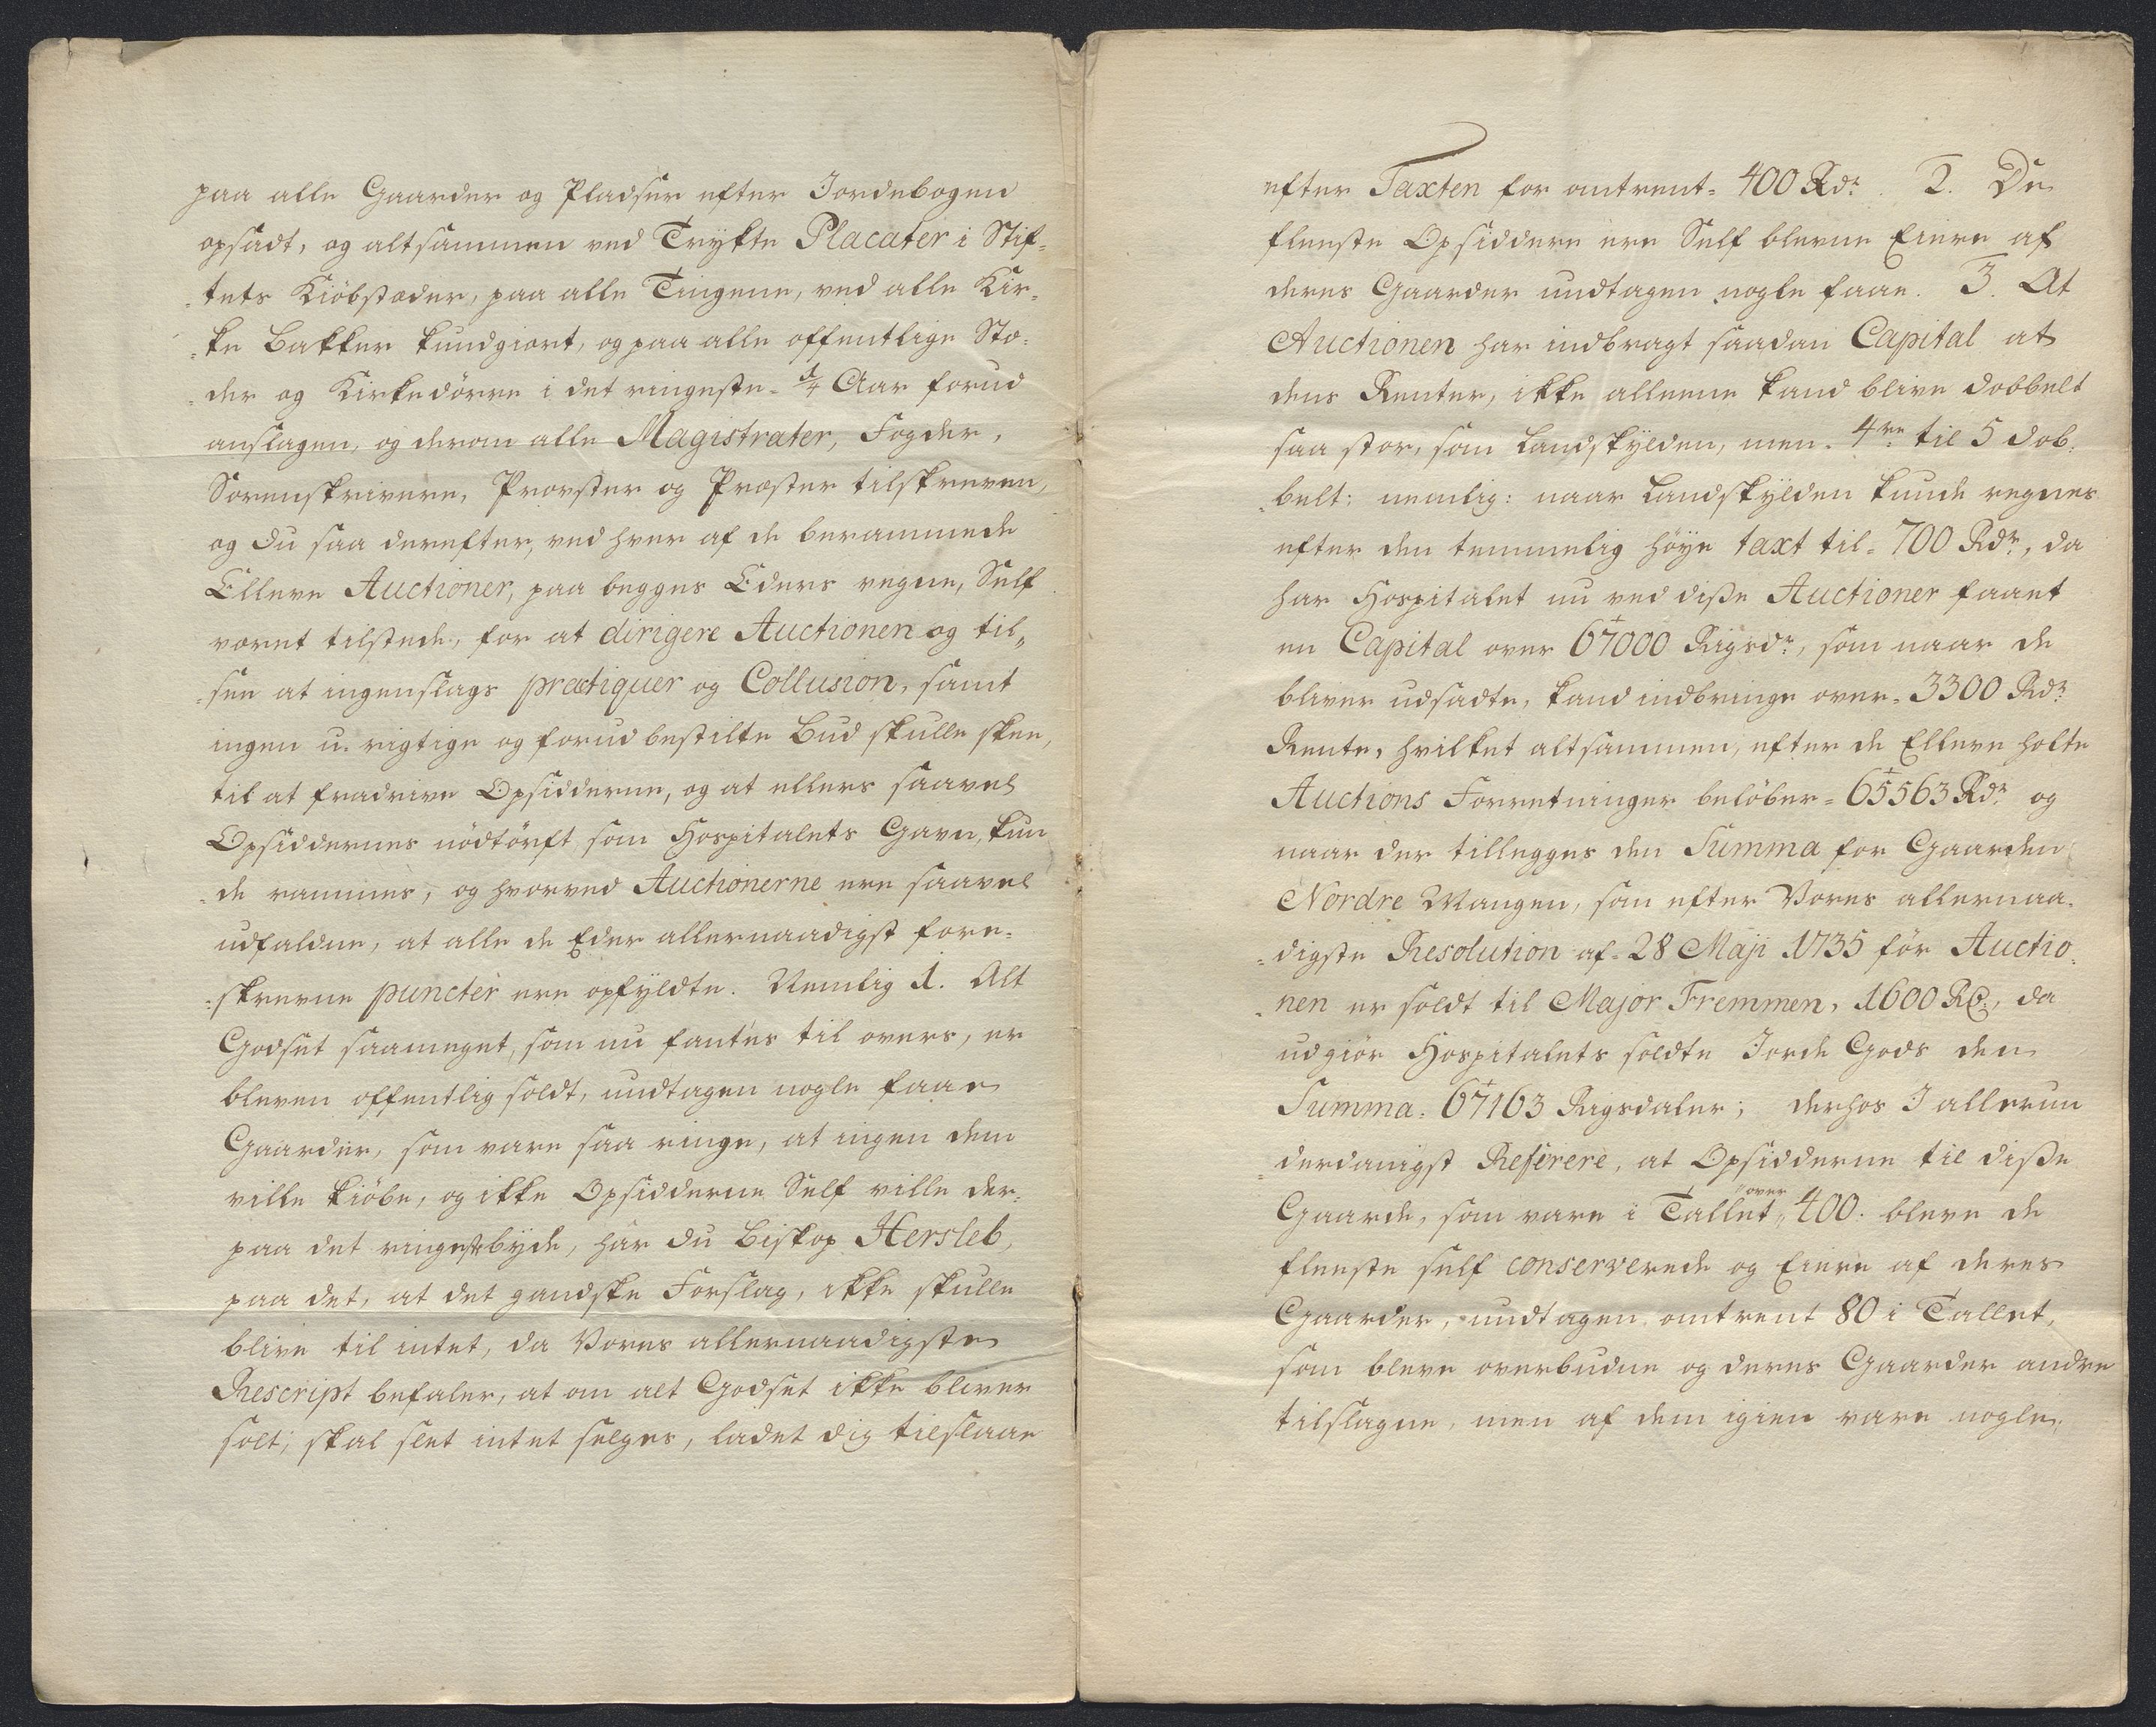 paa alle Gaarder og Pladser efter Jordebogen
opsadt, og altsammen ved Trykte Placater i Stif-
-tets Kiöbstæder, paa alle Tingene, ved alle Kir-
-ke Bakker kundgiort, og paa alle offentlige Stæ-
-der og Kirkedörre i det ringeste - 1/4 Aar forud
anslagen, og derom alle Magistrater, Fogder,
Sorenskrivere, Provster og Præster tilskreven,
og du saa derefter, ved hver af de berammede
Elleve Auctioner, paa begges Eders vegne, Self
været tilstede, for at dirigere Auctionen og til„
-see at ingenslags practiquer og Collusion, samt
ingen u-rigtige og forud bestilte Bud skulle skee,
til at fradrive Opsidderne, og at ellers saavel
Opsiddernes nödtörft som Hospitalets Gavn, kun
-de rammes, og hvorved Auctionerne ere saavel
udfaldne, at alle de Eder allernaadigst fore-
-skrevne puncter ere opfyldte. Nemlig 1. Alt
Godset saameget, som nu fantes til overs, er
bleven offentlig soldt, undtagen nogle faae
Gaarder, som vare saa ringe, at ingen dem
ville kiöbe, og ikke Opsidderne Self ville der-
paa det ringeste byde, har du Biskop Hersleb,
paa det, at det gandske Forslag, ikke skulle
blive til intet, da Vores allernaadigste
Rescript befaler, at om alt Godset ikke bliver
solt, skal slet intet selges, ladet dig tilslaae
efter Taxten for omtrent - 400 Rdr. 2. De
fleeste Opsiddere ere Self blevne Eiere af
deres Gaarder undtagen nogle faae. 3. At
Auctionen har indbragt saadan Capital at
dens Renter, ikke alleene kand blive dobbelt
saa stor, som Landskylden, men - 4re til 5 dob-
-belt: nemlig: naar Landskylden kunde regnes
efter den temmelig höye taxt til - 700 Rdr, da
har Hospitalet nu ved diße Auctioner faaet
en Capital over 67000 Rigsdr, som naar de
bliver udsadte, kand indbringe over - 3300 Rdr
Rente, hvilket altsammen, efter de Elleve holte
Auctions Forretninger belöber - 65563 Rdr og
naar der tillegges den Summa for Gaarden
Nordre Mangen, som efter Vores allernaa-
-digste Resolution af - 28 Maji 1735 för Auctio-
-nen er soldt til Major Fremmen, 1600 Rd, da
udgiör Hospitalets soldte Jorde Gods den
Summa - 67163 Rigsdaler; derhos I allerun
-derdanigst Referere, at Opsidderne til diße
Gaarde, som vare i Tallet over 400. bleve de
fleeste self conserverede og Eiere af deres
Gaarder, undtagen omtrent 80 i Tallet,
som bleve overbudne og deres Gaarder andre
tilslagne, men af dem igien vare nogle,